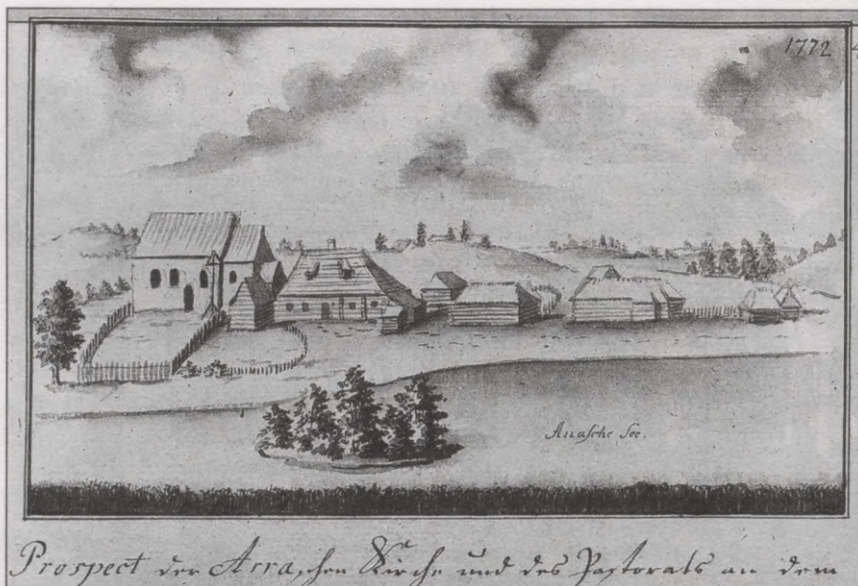 1772
Arrasche See.
Prospect der Arraschen Kirche und des Pastorats an dem